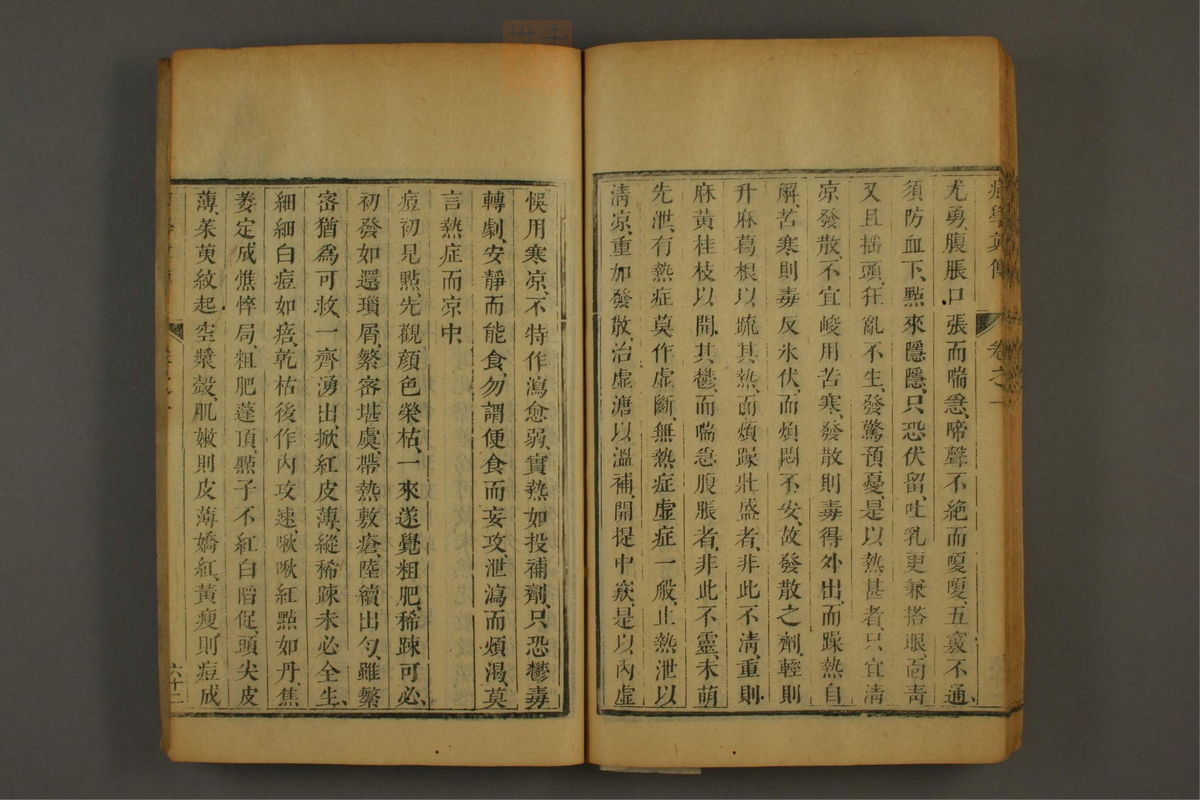 痘學真傳 卷之一
尤勇、腹脹口張而喘急、啼聲不絶而嗄嗄、五竅不通
須防血下、點來隱隱、只恐伏留、吐乳更兼搭眼、面青
又且搖頭、狂亂不生、發驚預憂、是以熱甚者、只宜清
凉發散、不宜峻用苦寒、發散則毒得外出、而躁熱自
解、苦寒則毒反氷伏、而煩悶不安、故發散之劑、輕則
升麻葛根以疏其熱、而煩躁壯盛者、非此不清、重則
麻黃桂枝以開其鬱、而喘急腹脹者、非此不靈、未萌
先泄、有熱症莫作虛斷、無熱症虛症一般、止熱泄以
清凉、重加發散、治虛溏以溫補、開提中疾、是以內虛
悞用寒凉、不特作瀉愈弱、實熱如投補劑、只恐鬱毒
轉劇、安靜而能食、勿謂便食而妄攻、泄瀉而煩渴、莫
言熱症而凉中、
痘初見點、先觀顏色榮枯、一來遂覺粗肥、稀踈可必、
初發如還瑣屑、繁密堪虞、帶熱敷瘡、陸續出勻、雖繁
密猶爲可救、一齊湧出、掀紅皮薄、縱稀踈未必全生、
細細白痘如㾦、乾枯後作內攻、速啾啾紅點如丹、焦
萎定成憔悴局、粗肥蓬頂、點子不紅白、䐄促、頭尖皮
薄、茱萸紋起、空漿殼、肌嫩則皮薄嬌紅、黃瘦則痘成
六十二